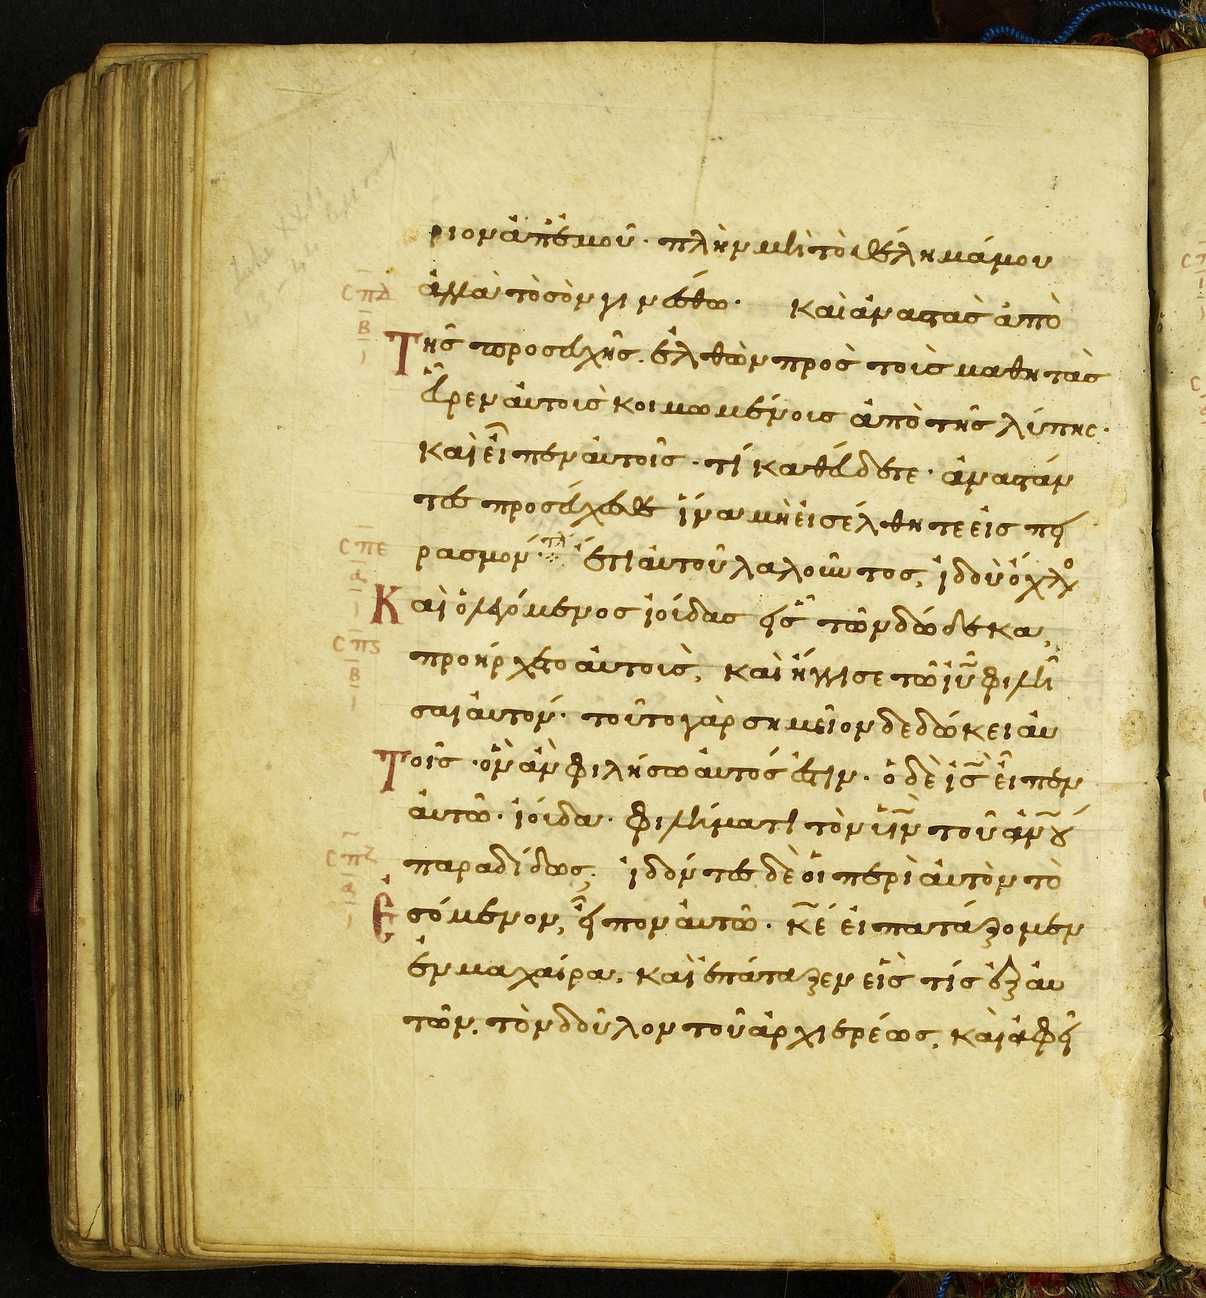 ριον ἀπ' ἐμοῦ · πλὴν μὴ τὸ θέλημά μου
ἀλλὰ τὸ σὸν γινέσθω · καὶ ἀναστὰς ἀπὸ
Τῆς προσευχῆς . ἐλθὼν πρὸς τοὺς μαθητὰς
εὗρεν αὐτοὺς κοιμωμένους ἀπὸ τῆς λύπης ·
καὶ εἶπεν αὐτοῖς · τί καθεύδετε · ἀναστάν
τες προσεύχεσθε ἵνα μὴ εἰσέλθητε εἰς πει
ρασμόν · ἔτι αὐτοῦ λαλοῦντος, ἰδοὺ ὄχλο
Καὶ ὁ λεγόμενος ἰούδας εἷς τῶν δώδεκα,
προήρχετο αὐτοὺς, καὶ ἤγγισε τῶ ἰῦ φιλῆ
σαι αὐτόν · τοῦτο γὰρ σημεῖον δεδώκει αὐ
Τοῖς · ὃν ἂν φιλήσω αὐτός ἐστιν · ὁ δὲ ἰς εἶπεν
αὐτῶ · ἰούδα · φιλήματι τὸν υἱν τοῦ ανου
παραδίδως; ἰδόντες δὲ οἱ περὶ αὐτὸν τὸ
Ἐσόμενον, εἶπον αὐτῶ · κε εἰ πατάξομεν
ἐν μαχαίρα, καὶ ἐπάταξεν εἷς τίς ἐξ αὐ
τῶν . τὸν δοῦλον τοῦ ἀρχιερέως, καὶ ἀφεῖ
σπδ
β
σπε
α
σπς
β
σπζ
α